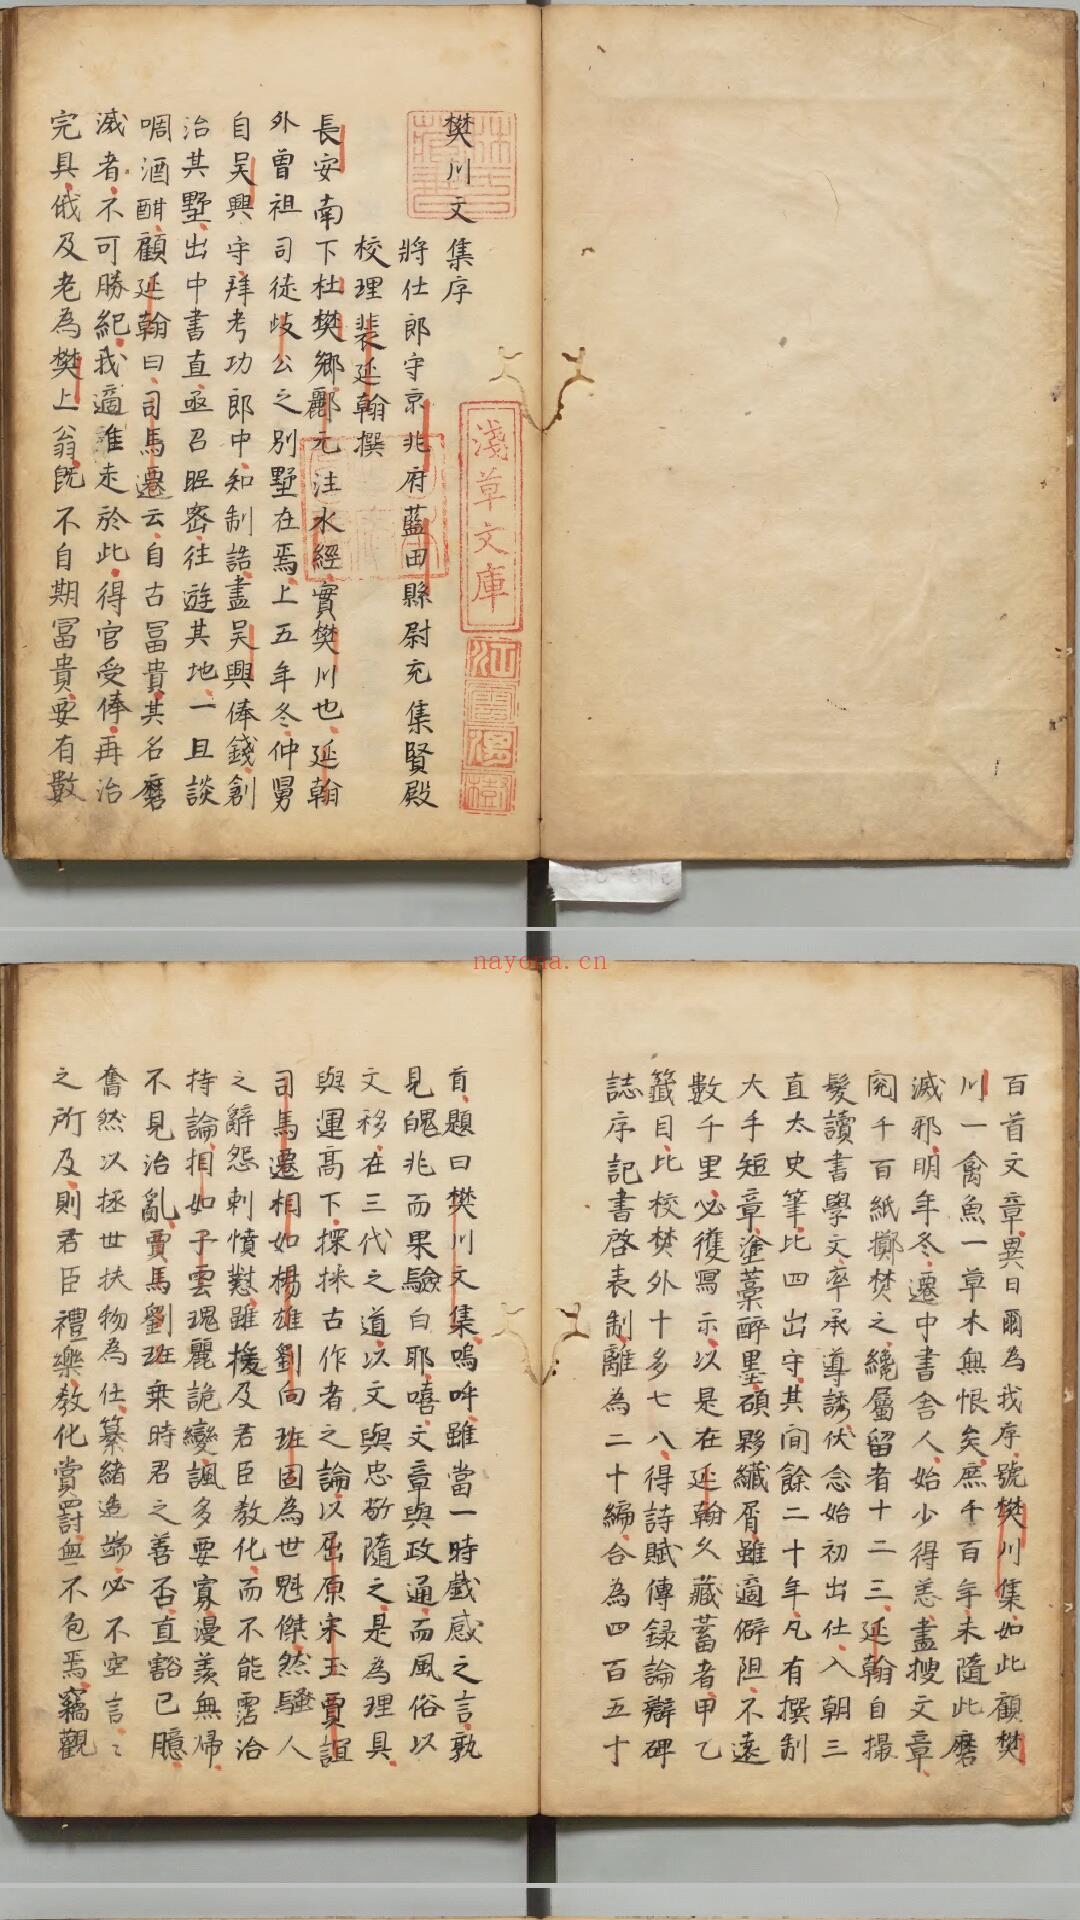 樊川文集序
將仕郎守京兆府藍田縣尉充集賢殿
校理裴延翰撰
長安南下杜樊鄉酈元注水經實樊川也延翰
外曾祖司徒歧公之别墅在焉上五年冬仲舅
自吴興守拜考功郎中知制誥盡吴興俸錢創
治其墅出中書直亟召昵密往遊其地一旦談
啁酒酣顧延翰曰司馬遷云自古冨貴其名磨
滅者不可勝紀我適稚走於此得官受俸再治
完具俄及老為樊上翁既不自期冨貴要有數
淺草文庫
百首文章異日爾為我序號樊川集如此顧樊
川一禽魚一草木無恨矣庶千百年未隨此磨
滅邪明年冬遷中書舍人始少得恙盡搜文章
閲千百紙擲焚之纔屬留者十二三延翰自撮
髮讀書學文率承導誘伏念始初出仕入朝三
直太史筆比四出守其間餘二十年凡有撰制
大手短章塗藁醉墨碩夥纖屑雖適僻阻不遠
數千里必獲寫示以是在延翰久藏蓄者甲乙
籤目比校焚外十多七八得詩賦傳録論辯碑
誌序記書啓表制離為二十編合為四百五十
首題曰樊川文集嗚呼雖當一時戲感之言孰
見魄兆而果驗白耶嘻文章與政通而風俗以
文移在三代之道以文與忠敬隨之是為理具
與運髙下探採古作者之論以屈原宋玉賈誼
司馬遷相如楊雄劉向班固為世魁傑然騷人
之辭怨刺憤懟雖援及君臣教化而不能霑洽
持論相如子雲瑰麗詭變諷多要寡漫羡無歸
不見治亂賈馬劉班乗時君之善否直豁已臆
奮然以拯世扶物為任纂緒造端必不空言言
之所及則君臣禮樂教化賞罸無不包焉竊觀
nayona.cn